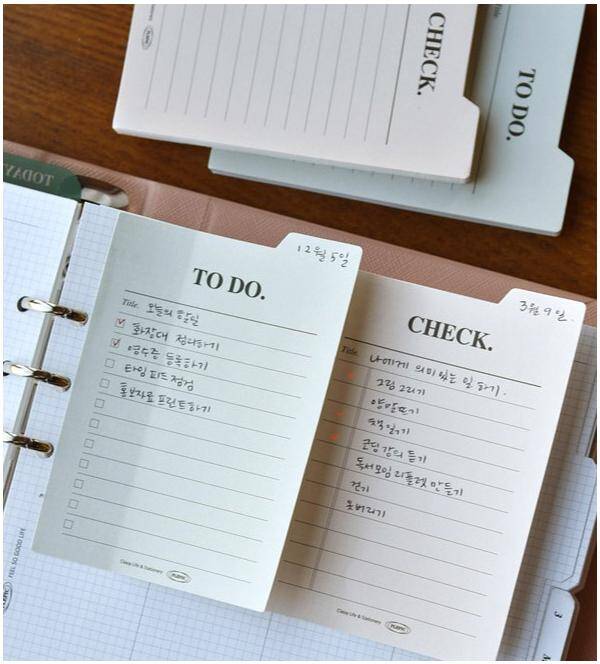 CHECK.
TO DO.
TODAY
12월 5일
TO DO.
Title. 오늘의 할일
화장대 정리하기
영수증 등록하기
타임피드점검
홍보자료 프린트하기
Classy Life & Stationery
PLEPIC
3월 9일.
CHECK.
Title. 나에게 의미있는 일 하기.
그림그리기
양말뜨기
책읽기
코딩강의 듣기
독서모임 리플렛 만들기
걷기
옷버리기
Classy Life & Stationery
PLEPIC
FEEL SO GOOD LIFE
3